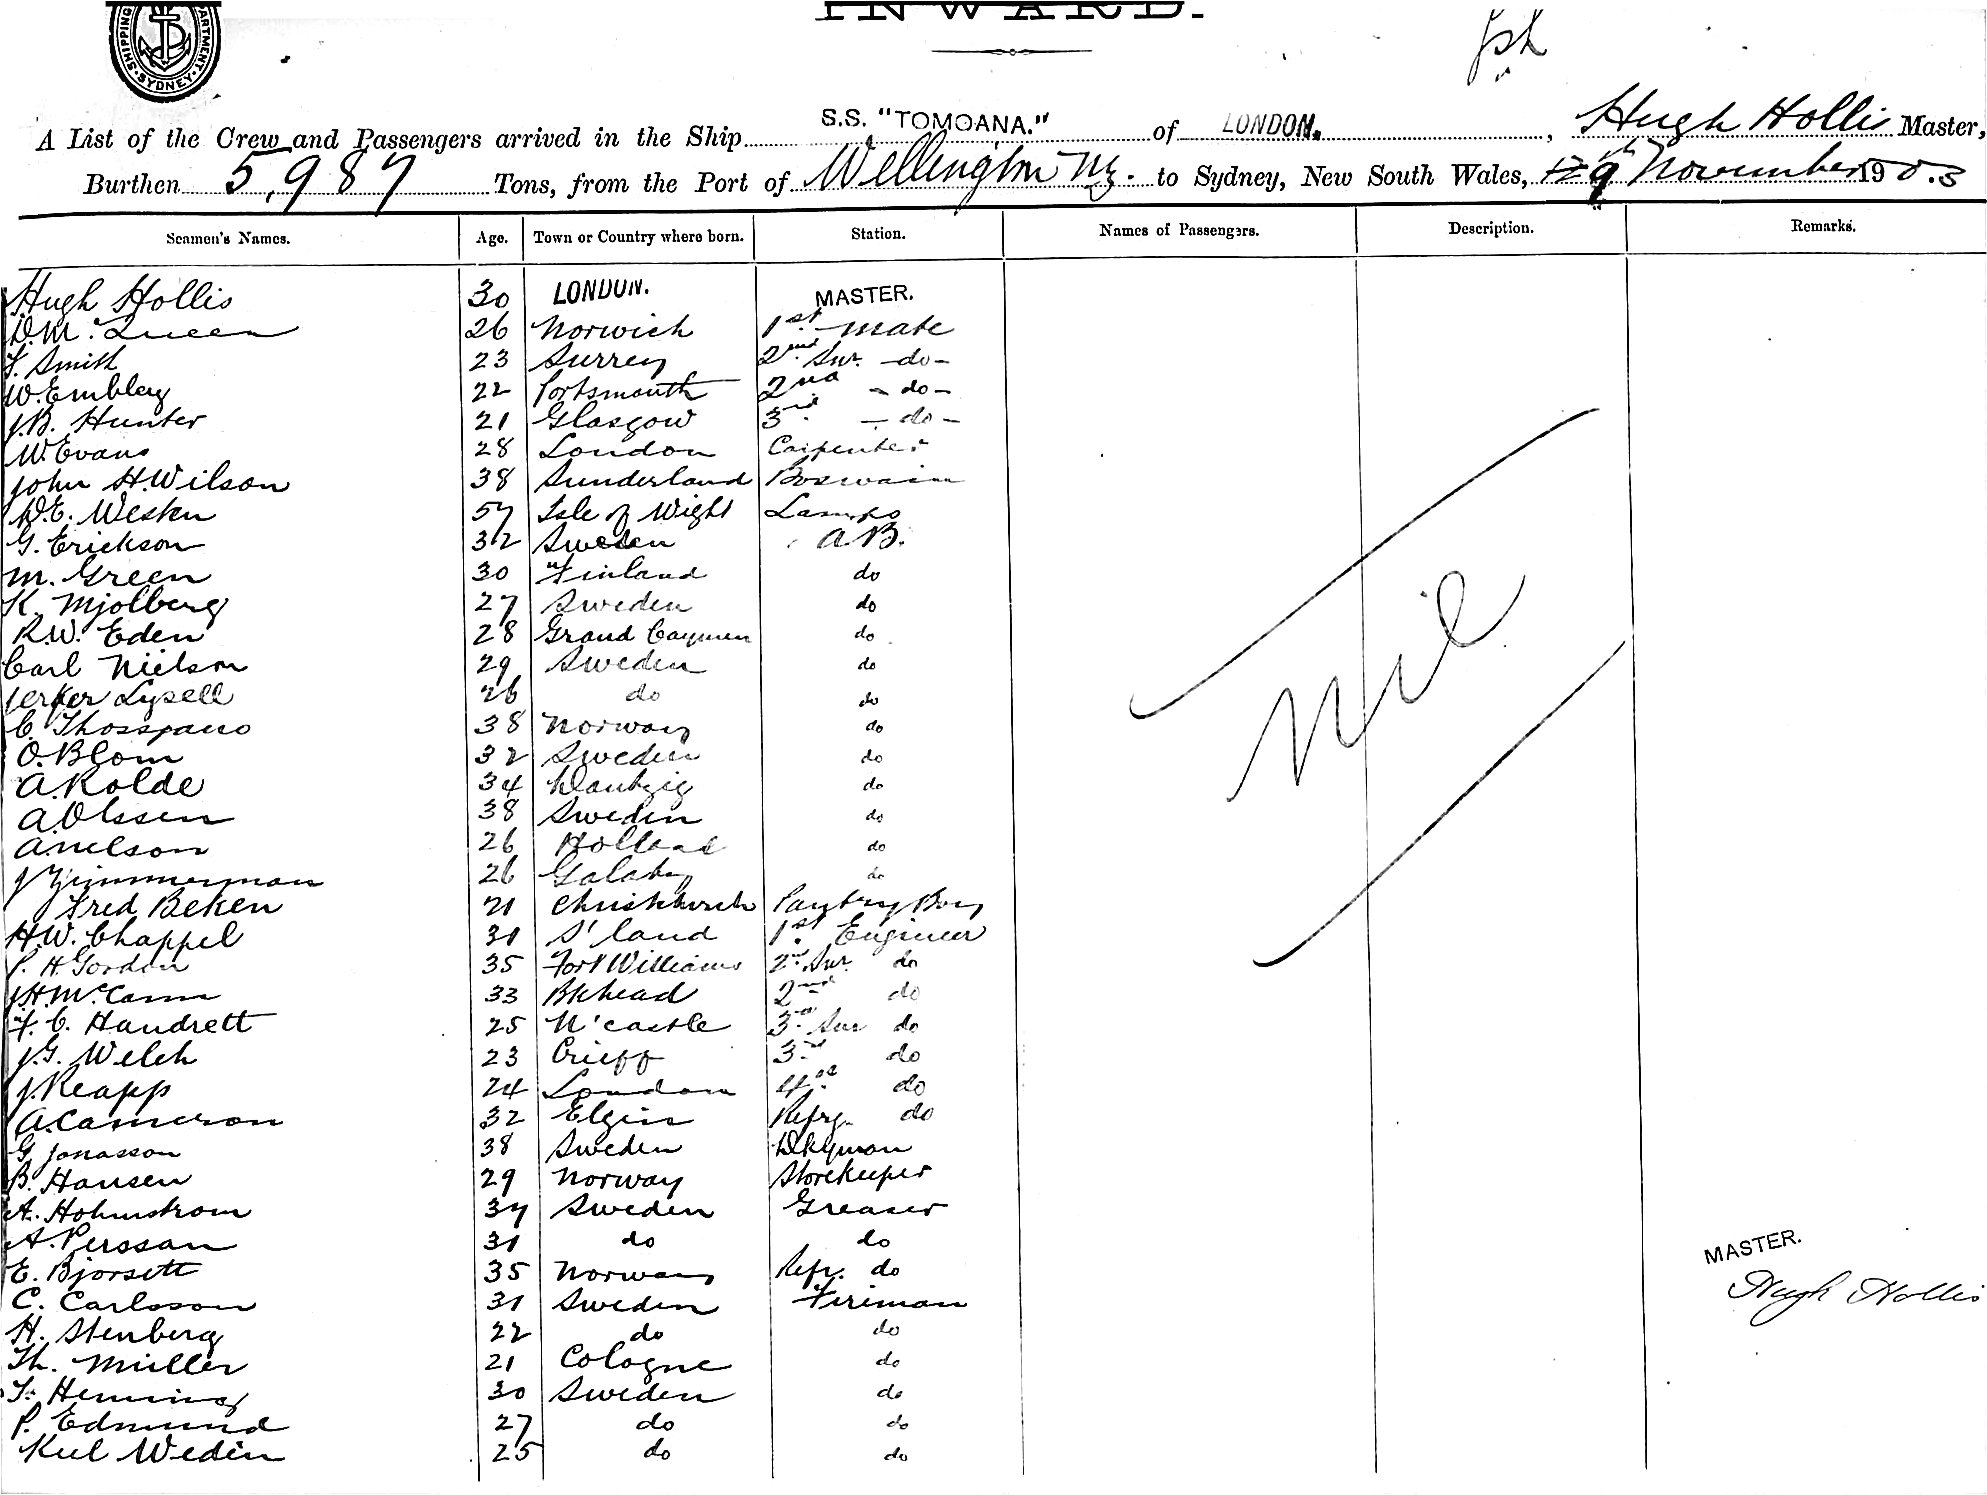 INWARD.
SHIPPING DEPARTMENT SYDNEY
A List of the Crew and Passengers arrived in the Ship S.S. "TOMOANA." of LONDON, Hugh Hollis Master,
Burthen 5,987 Tons, from the Port of Wellington NZ. to Sydney, New South Wales, 9th November 1903
Seamen's Names. Age. Town or Country where born. Station. Names of Passengers. Description. Remarks.
Hugh Hollis 30 LONDON. MASTER.
D. Mc Queen 26 Norwich 1st Mate
F. Smith 23 Surrey 2nd Sur. -do-
W. Embley 22 Portsmouth 2nd -do-
J.B. Hunter 21 Glasgow 3rd -do-
W. Evans 28 London Carpenter
John H. Wilson 38 Sunderland Boswain
W.E. Westen 57 Isle of Wight Lamps
G. Erickson 32 Sweden A.B.
M. Green 30 Finland do
K. Mjolberg 27 Sweden do
R.W. Eden 28 Grand Caymen do
Carl Nielson 29 Sweden do
Jerker Lysell 26 do do
C. 38 Norway do
O. Blom 32 Sweden do
A. Rolde 34 Dantzig do
A. Olssen 38 Sweden do
A. Nelson 26 Holland do
J Zimmerman 26 do
Fred Beken 21 Christchurch Pantry Boy
H.W. Chappel 31 S'land 1st Engineer
P. H. Gordon 35 Fort Williams 2nd Sur. do
J.H. McCann 33 Bkhead 2nd do
F. C. Handrett 25 N'castle 3rd Sur do
J.G. Welch 23 Crieff 3rd do
J. Reapp 24 London 4th do
A. Cameron 32 Elgin Refrg. do
G Jonasson 38 Sweden Dkyman
B. Hansen 29 Norway Storekeeper
A. Holmstrom 37 Sweden Greaser
A. Perssan 31 do do
E. Bjorsett 35 Norway Refr. do
C. Carlsson 31 Sweden Fireman
H. Stenberg 22 do do
Th. Müller 21 Cologne do
F. Henning 30 Sweden do
P. Edmund 27 do do
Wedin 25 do do
Nil
MASTER.
Hugh Hollis